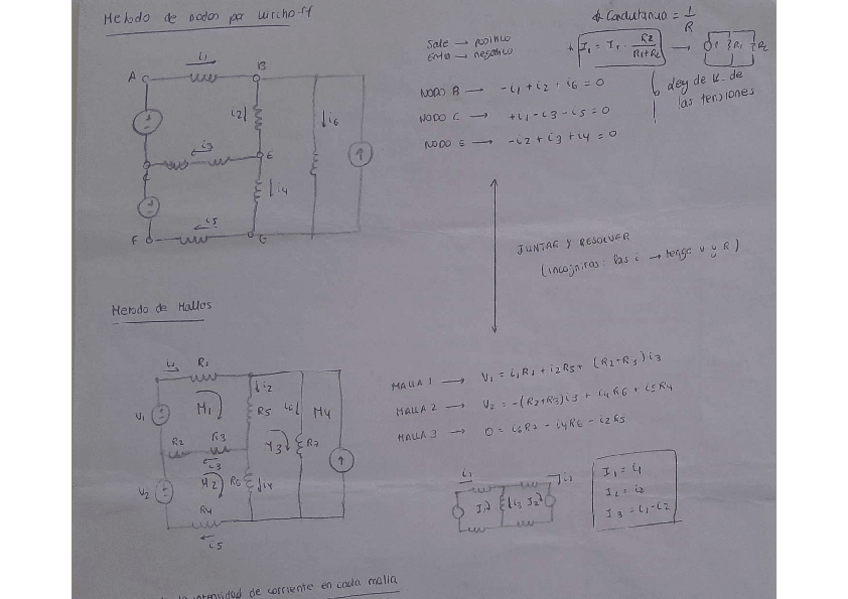 Metodo de nodos por Kirchoff
* Conductancia = 1/R
Sale → positivo
Entra → negativo
* I1 = IT · R2/(R1+R2) →
R1
R2
NODO B → -i1 + i2 + i6 = 0
NODO C → +i1 - i3 - i5 = 0
NODO E → -i2 + i3 + i4 = 0
Ley de K. de
las tensiones
A
i1
B
i2
i6
i3
E
C
i4
F
i5
G
JUNTAR Y RESOLVER
(incognitas: las i → tengo V y R)
Metodo de Mallas
i1
R1
i2
V1
M1
R5
i6
M4
R2
R3
i3
M3
R7
V2
M2
R6
i4
R4
i5
MALLA 1 → V1 = i1R1 + i2R5 + (R2+R3)i3
MALLA 2 → V2 = -(R2+R3)i3 + i4R6 + i5R4
MALLA 3 → 0 = i6R7 - i4R6 - i2R5
i1
i2
I1
i3
I2
I1 = i1
I2 = i2
I3 = i1 - i2
la intensidad de corriente en cada malla